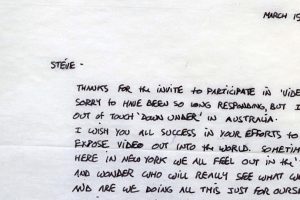 MARCH 15
STEVE -
THANKS FOR the INVITE to PARTICIPATE IN 'VIDE
SORRY to HAVE BEEN SO LONG RESPONDING, BUT I
OUT OF TOUCH 'DOWN UNDER' IN AUSTRALIA.
I WISH YOU ALL SUCCESS IN YOUR EFFORTS to
EXPOSE VIDEO OUT INTO the WORLD. SOMETIM
HERE IN NEW YORK WE ALL FEEL OUT IN the '
AND WONDER WHO WILL REALLY SEE WHAT W
AND ARE WE DOING ALL THIS JUST FOR OURSE